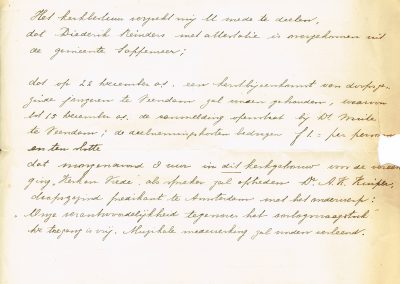 Het kerkbestuur verzoekt mij U mede te deelen,
dat Diederik Reinders met attestatie is overgekomen uit
de gemeente Sappemeer;
dat op 22 december a.s. een kerstbijeenkomst van doopsge-
zinde jongeren te Veendam zal worden gehouden, waarvoor
tot 15 december a.s. de aanmelding openstaat bij Ds.
te Veendam; de deelnemingskosten bedragen f 1.= per persoon
en ten slotte
dat morgenavond 8 uur in dit kerkgebouw voor de vereeni-
ging "Kerk en Vrede", als spreker zal optreden Ds. A.K. Kuiper,
doopsgezind predikant te Amsterdam met het onderwerp:
Onze verantwoordelijkheid tegenover het oorlogsvraagstuk
De toegang is vrij. Muzikale medewerking zal worden verleend.